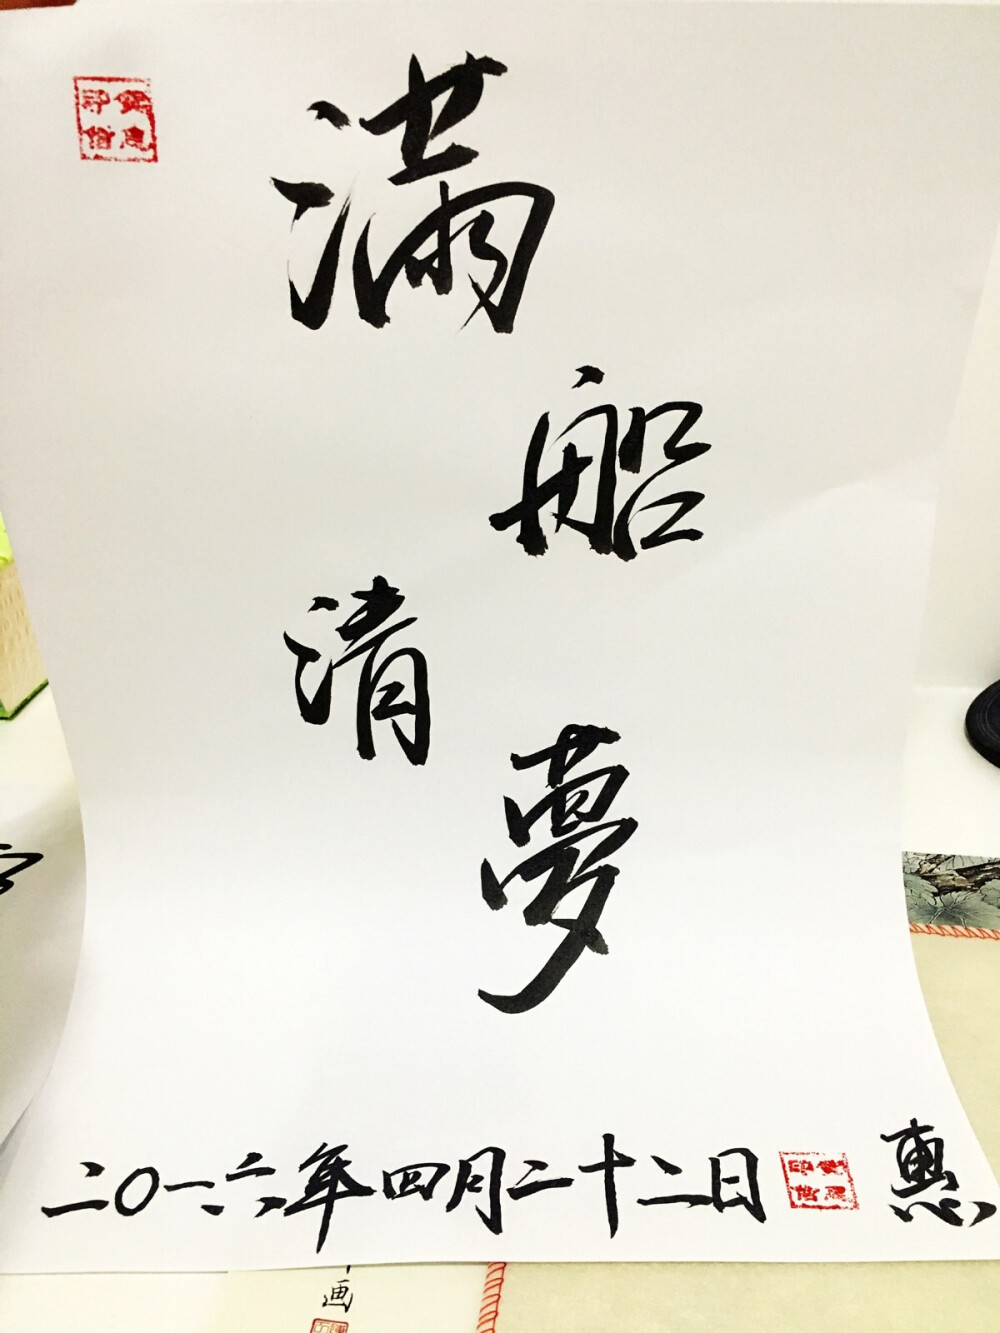 满
船
清
夢
二〇一六年四月二十二日 惠
画